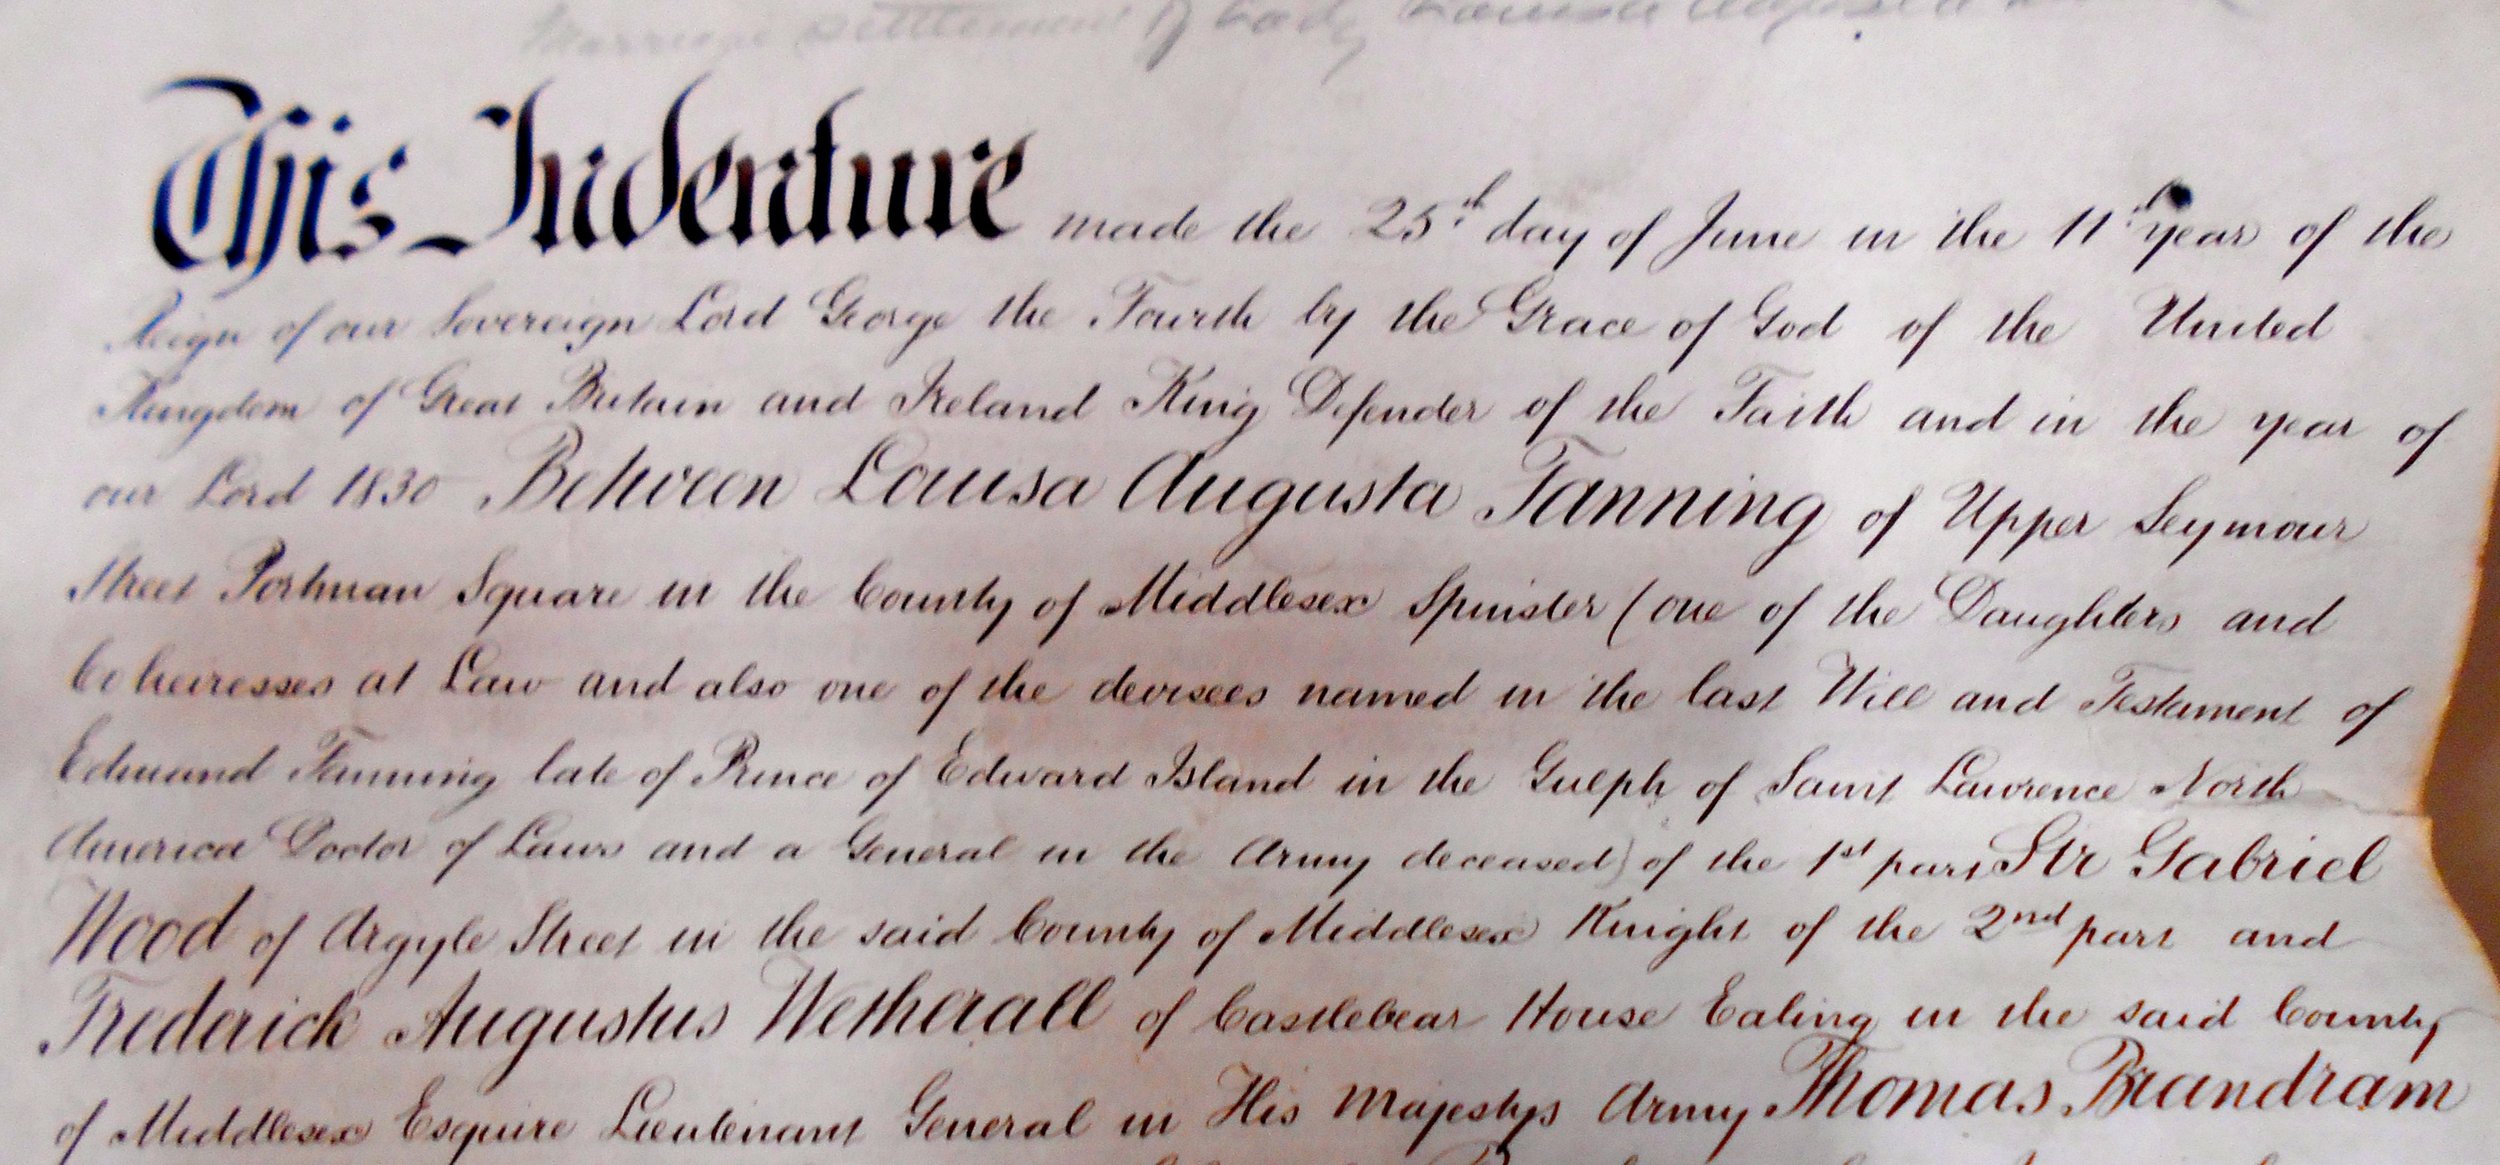 Marriage settlement of Lady Louisa Augusta
This Indenture made the 25th day of June in the 11th year of the
Reign of our Sovereign Lord George the Fourth by the Grace of God of the United
Kingdom of Great Britain and Ireland King Defender of the Faith and in the year of
our Lord 1830 Between Louisa Augusta Fanning of Upper Seymour
Street Portman Square in the County of Middlesex Spinster (one of the Daughters and
Coheiresses at Law and also one of the devisees named in the last Will and Testament of
Edmund Fanning late of Prince of Edward Island in the Gulph of Saint Lawrence North
America Doctor of Laws and a General in the Army deceased) of the 1st part Sir Gabriel
Wood of Argyle Street in the said County of Middlesex Knight of the 2nd part and
Frederick Augustus Wetherall of Castlebear House Ealing in the said County
of Middlesex Esquire Lieutenant General in His Majestys Army Thomas Brandram